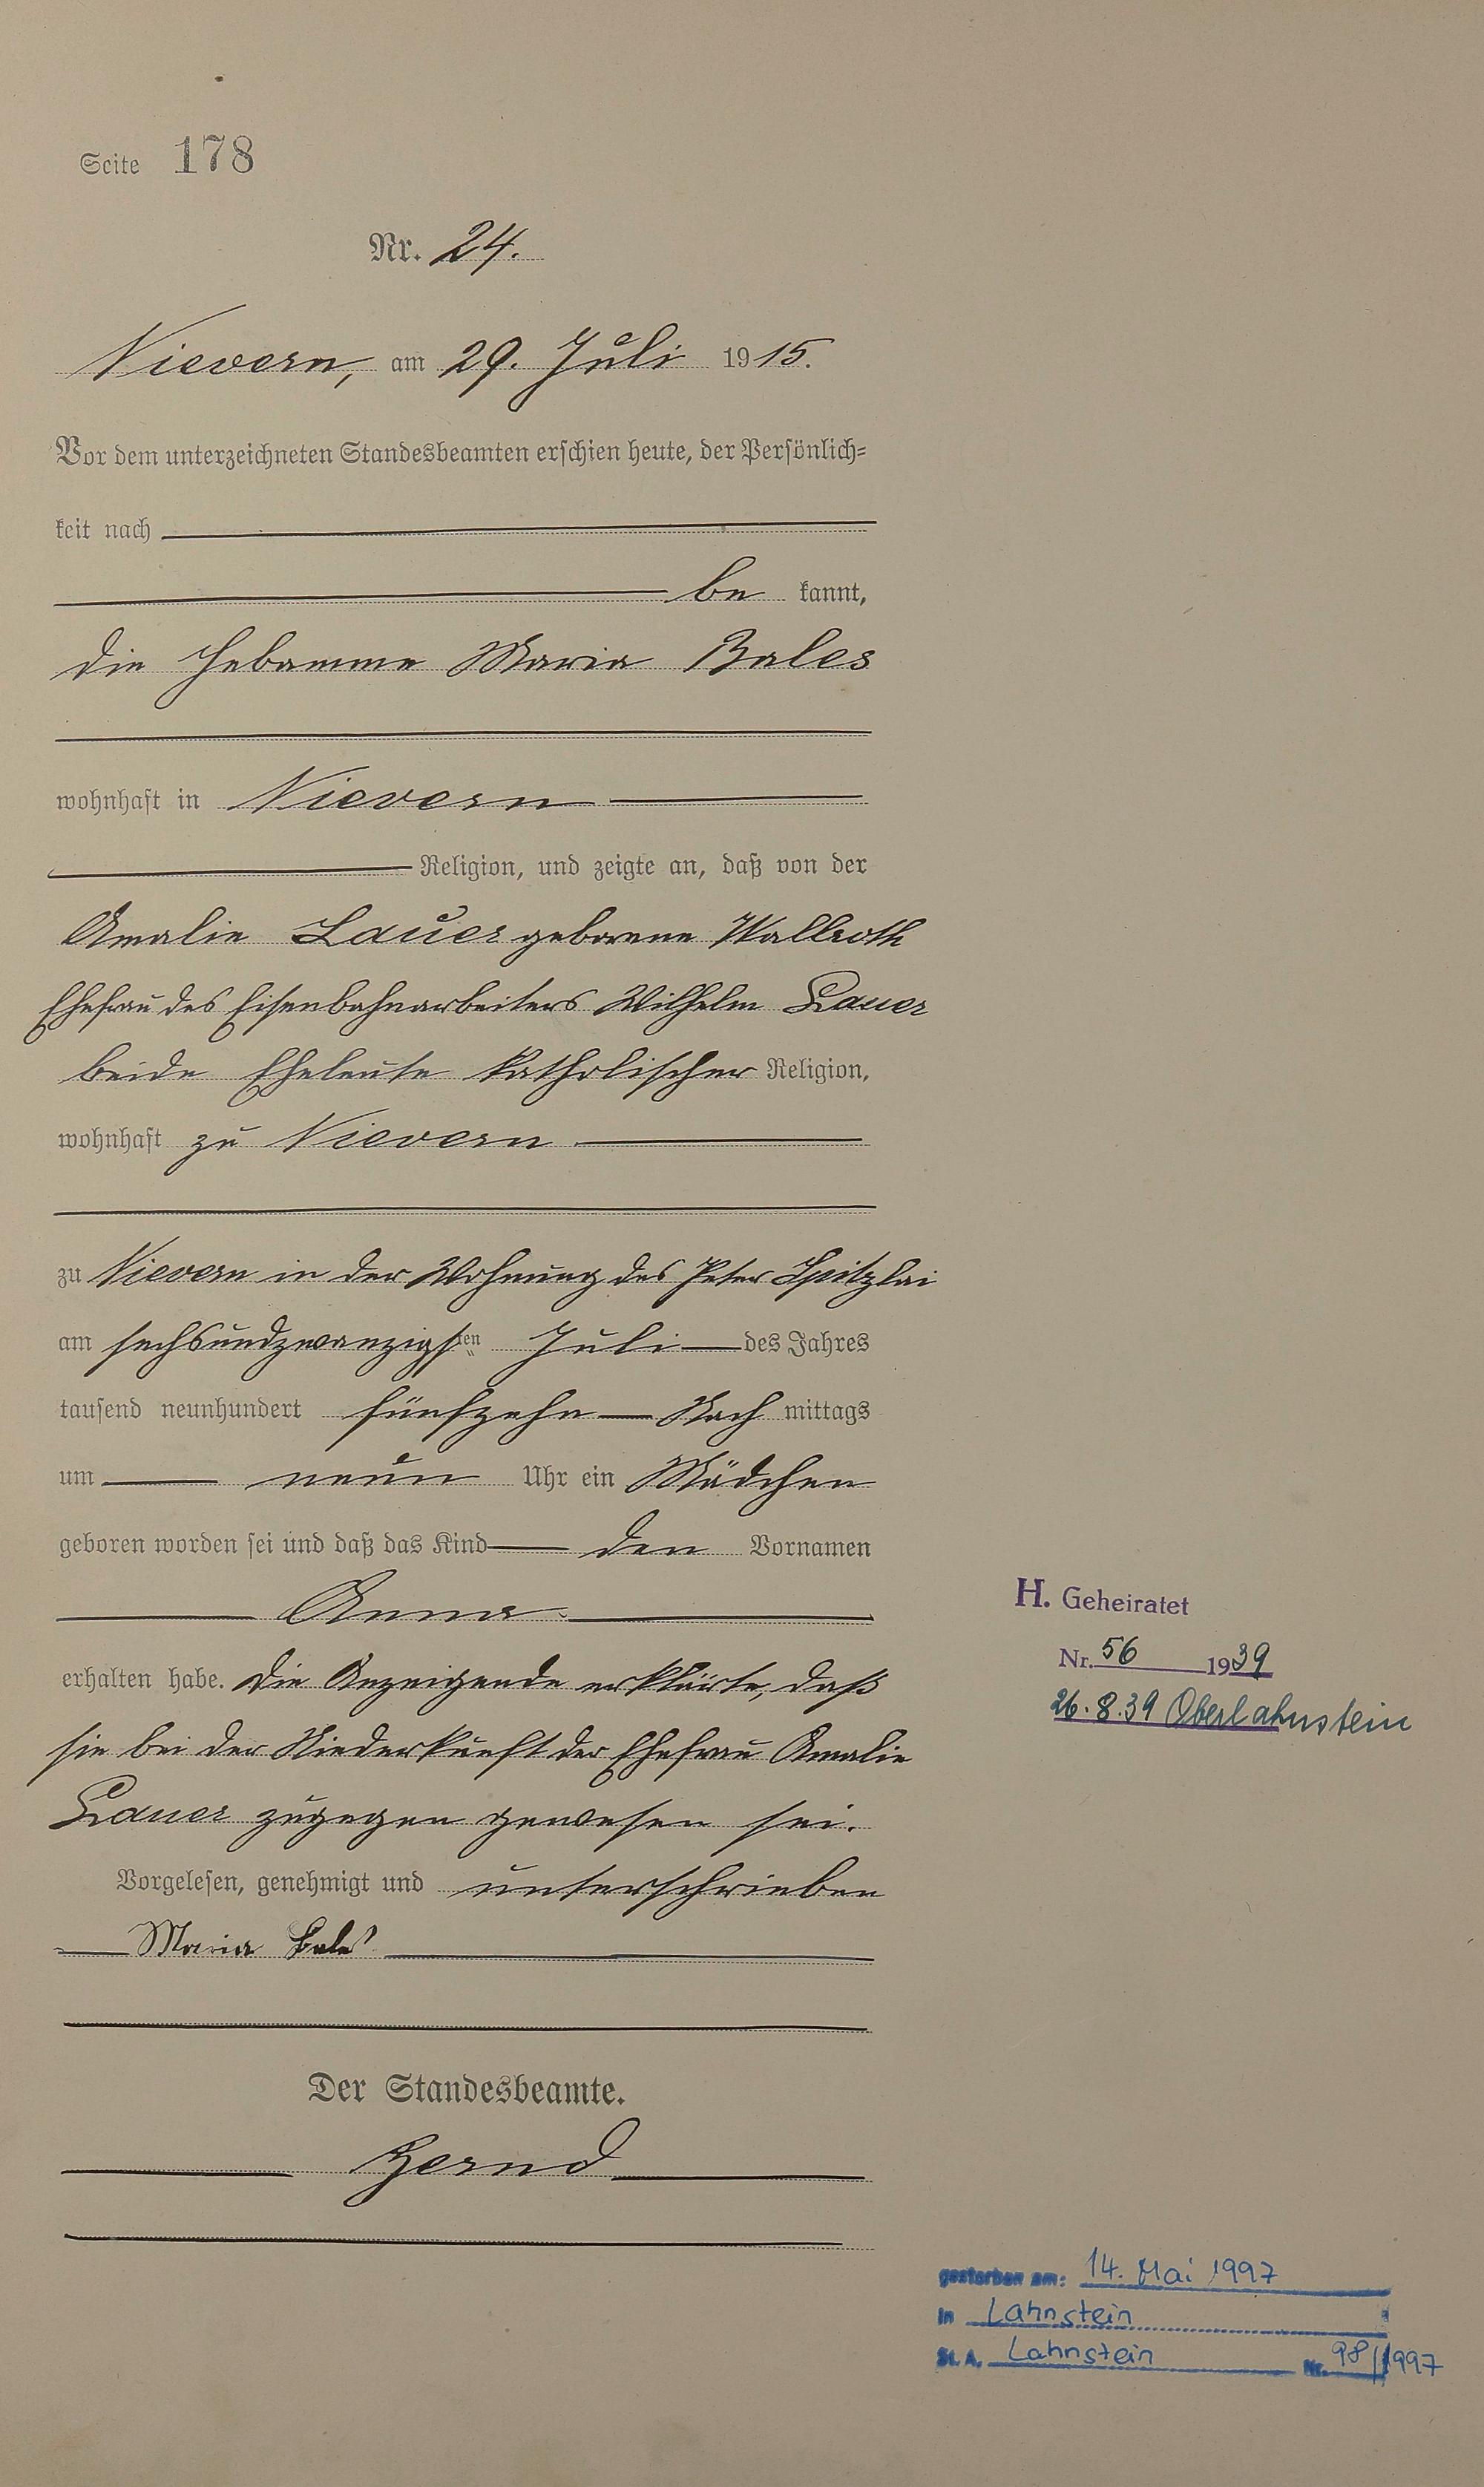 Seite 178
Nr. 24.
Nievern, am 29. Juli 1915.
Vor dem unterzeichneten Standesbeamten erschien heute, der Persönlich=
keit nach
be kannt,
die Hebamme Maria Bales
wohnhaft in Nievern
Religion, und zeigte an, daß von der
Amalie Lauer geborene Wallroth
Ehefrau des Eisenbahnarbeiters Wilhelm Lauer
beide Eheleute katholischer Religion,
wohnhaft zu Nievern
zu Nievern in der Wohnung des Peter Spitzlai
am sechsundzwanzigsten Juli des Jahres
tausend neunhundert fünfzehn Nach mittags
um neun Uhr ein Mädchen
geboren worden sei und daß das Kind den Vornamen
Anna
erhalten habe. Die Anzeigende erklärte, daß
sie bei der Niederkunft der Ehefrau Amalie
Lauer zugegen gewesen sei.
Vorgelesen, genehmigt und unterschrieben
Maria Bales
Der Standesbeamte.
Zernd
H. Geheiratet
Nr. 56 1939
26.8.39 Oberlahnstein
gestorben am: 14. Mai 1997
in Lahnstein
St. A. Lahnstein Nr. 98/1997